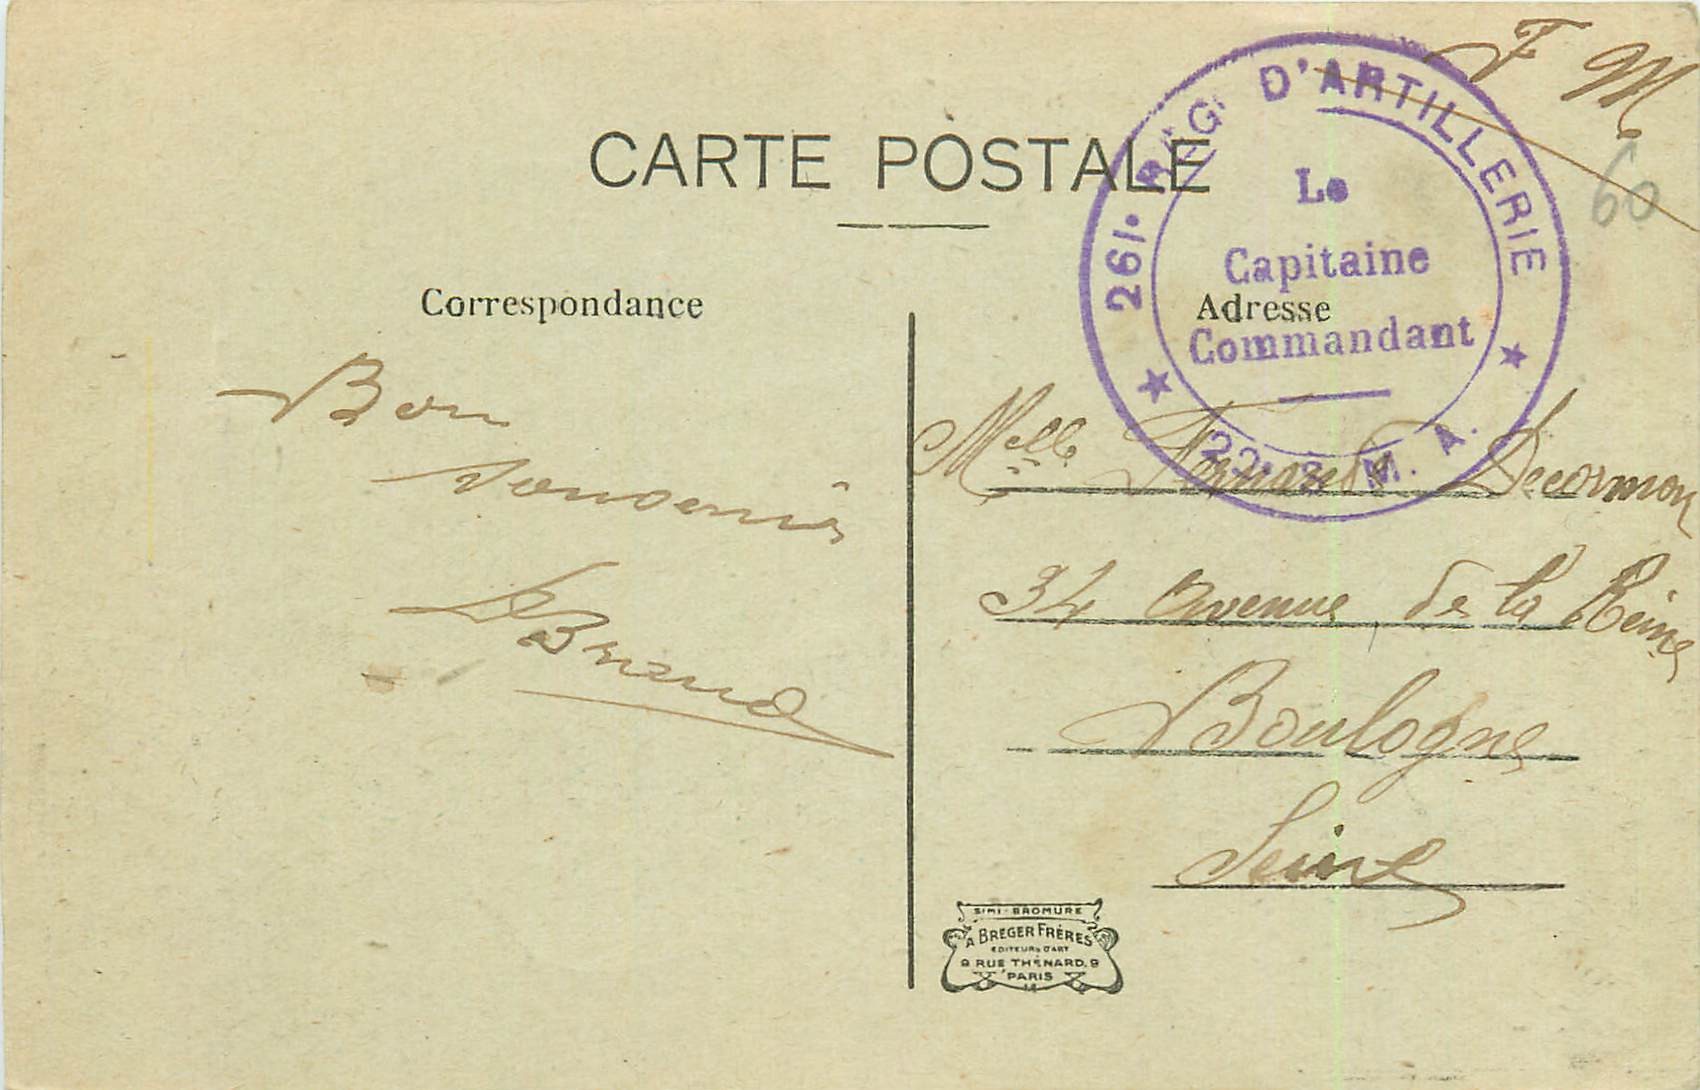 F M
60
CARTE POSTALE
261• RÉG. D'ARTILLERIE
Le
Capitaine
Commandant
M. A.
Correspondance
Adresse
Bon
souvenir
Briand
Melle Fernande Decormon
34 avenue de la Reine
Boulogne
Seine
SIMI-BROMURE
A BREGER FRÈRES
EDITEURS D'ART
9 RUE THÉNARD, 9
PARIS